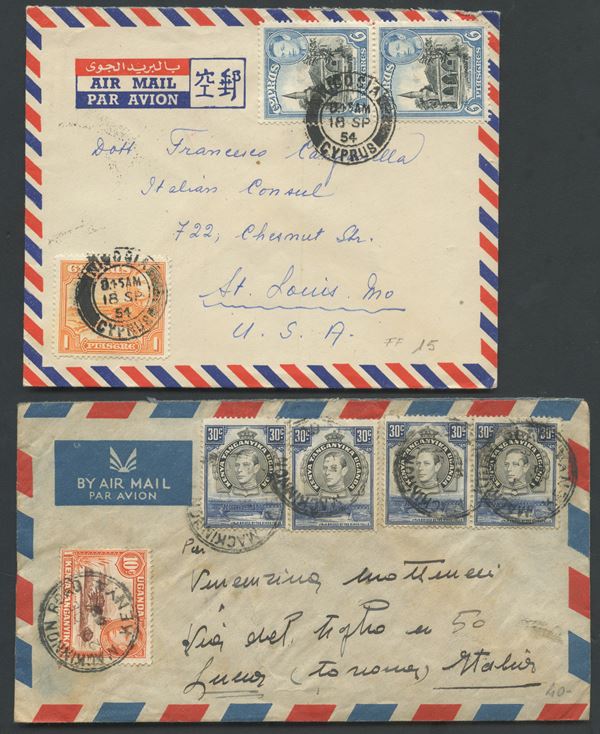 بالبريد الجوى
AIR MAIL
PAR AVION
空郵
CYPRUS 6 PIASTRES
CYPRUS 6 PIASTRES
NICOSIA
8:45AM
18 SP
54
CYPRUS
Dott Francesco
Italian Consul
722, Chesnut Str.
St. Louis. Mo
U. S. A.
NICOSIA
8:45AM
18 SP
54
CYPRUS
1 PIASTRE 1
FF 15
BY AIR MAIL
PAR AVION
30c 30c 30c 30c 30c 30c 30c
KENYA TANGANYIKA UGANDA
KENYA TANGANYIKA UGANDA
KENYA TANGANYIKA UGANDA
KENYA TANGANYIKA UGANDA
MACKINNON
10c UGANDA
KENYA TANGANYIKA
MACKINNON ROAD
KENYA
Per
Via del
50
Italia
40-